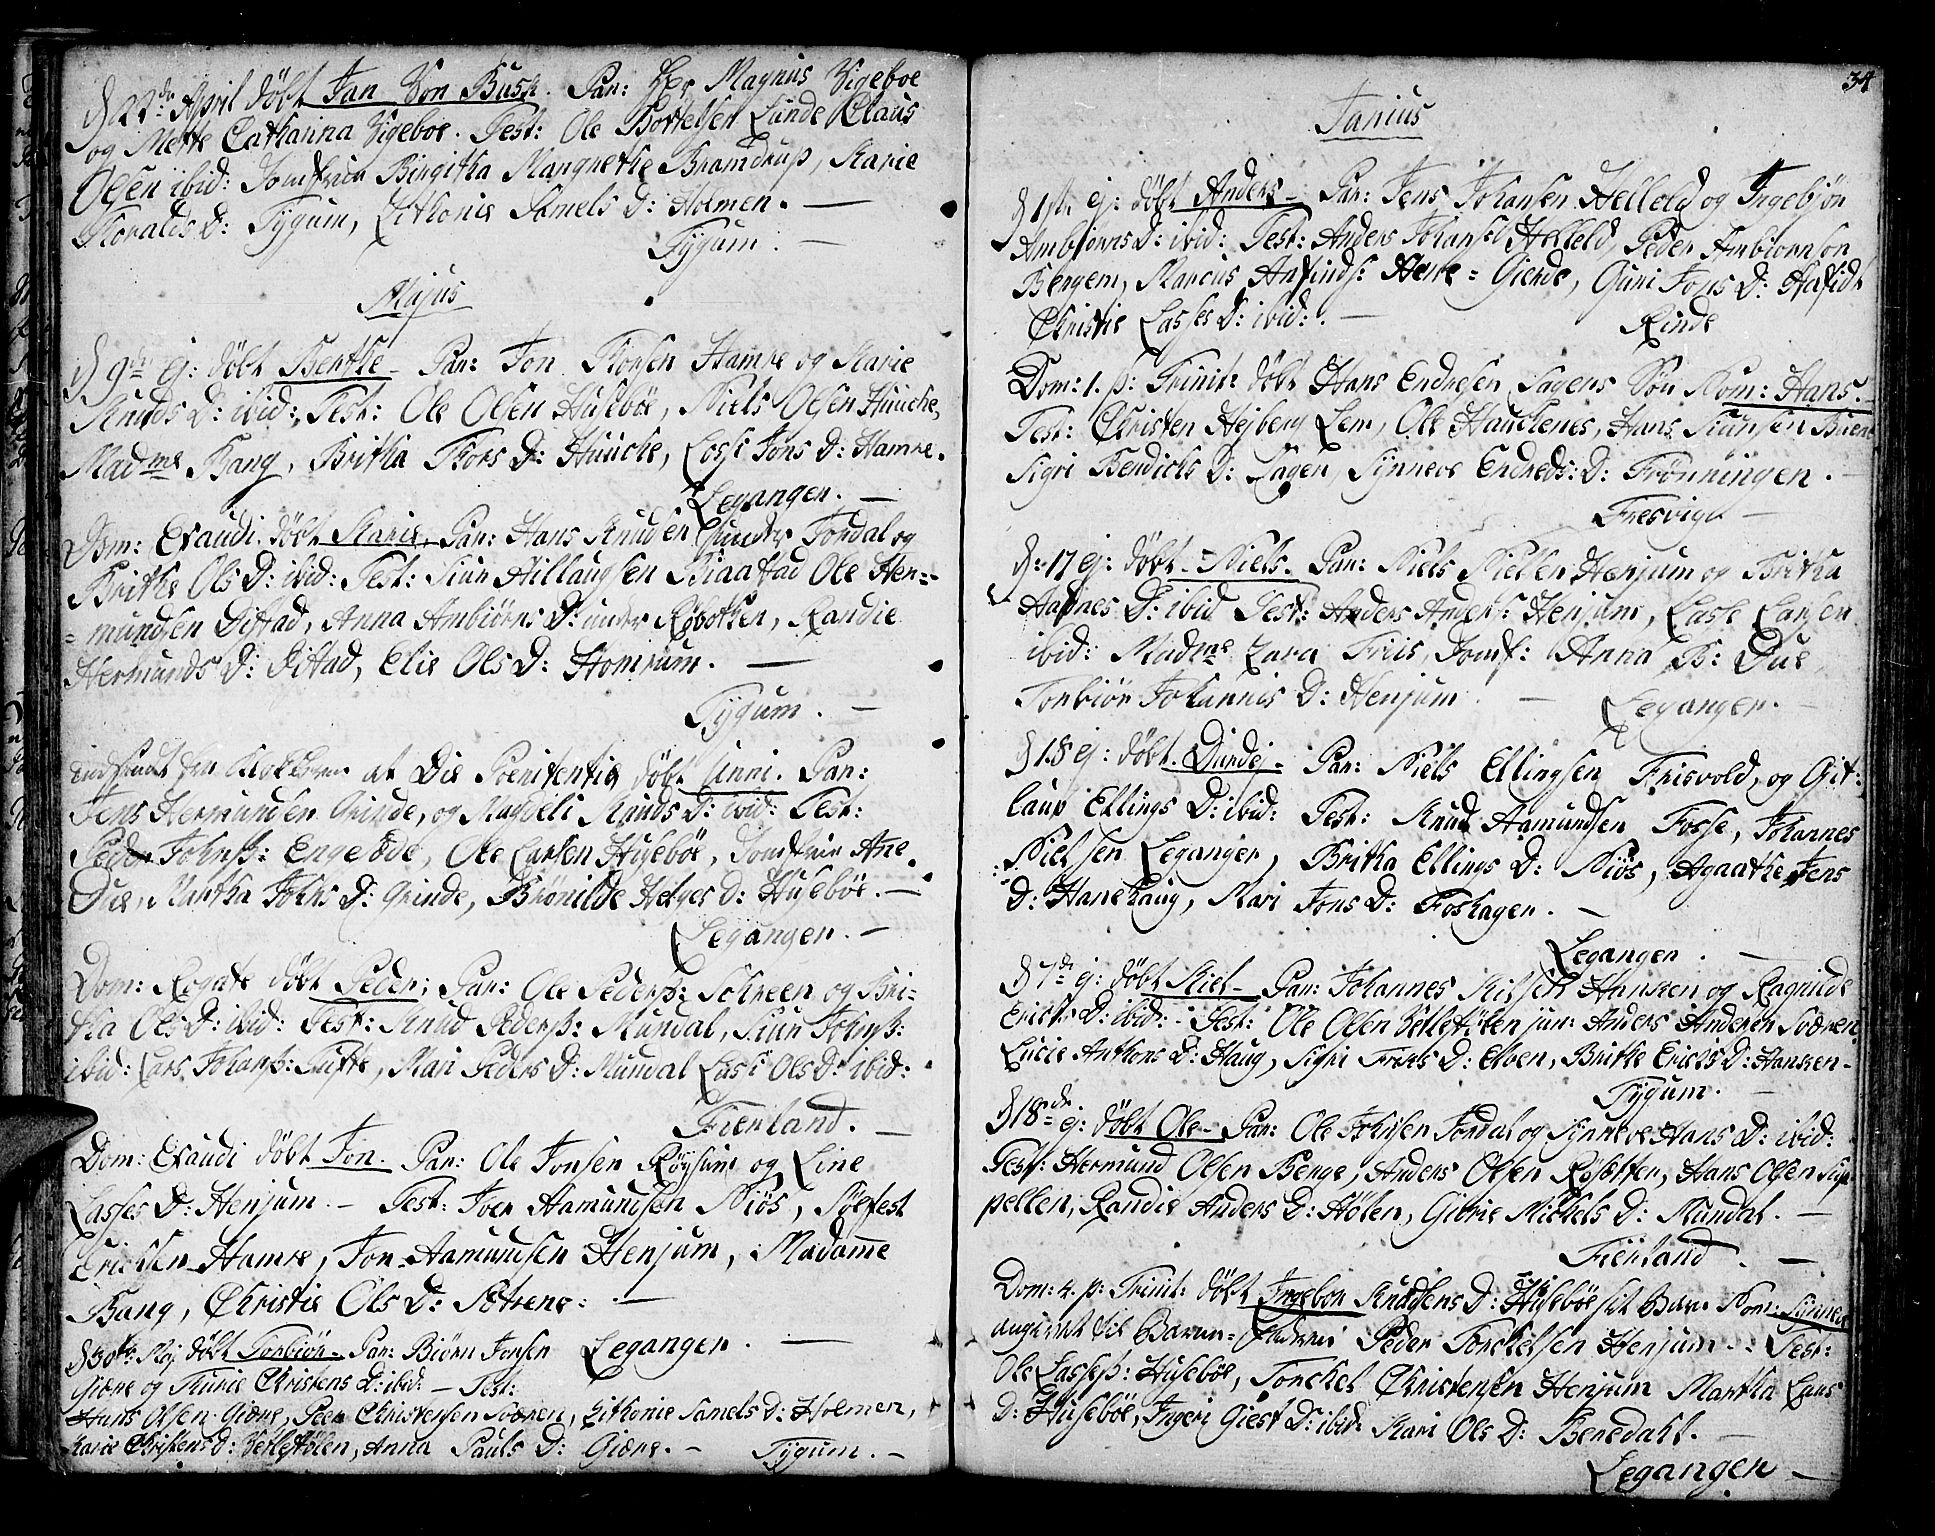 d 22de April döbt Jan Von Busk. Par: Hr Magnus Vigeboe
og Mette Catharina Vigeboe. Test: Ole Bottelsen Lunde Claus
Olsen ibid: Jomfrue Birgitha Mangrethe Bramdrup, Karie
Thoralds D: Tÿgum, Lithonie Samels D: Holmen. —
Tÿgum. —
Majus
d 9de ej: döbt Benthe – Par: Jon Thorsen Hamre og Marie
Knuds D: ibid: Test: Ole Olsen Huseböe, Niels Olsen Huuche,
Madme Bang, Britha Thors D: Huuche, Losse Jons D: Hamre.
Leganger. —
Dom: Exaudi döbt Karie, Par: Hans Knudsen under Jordal og
Brithe Ols D: ibid: Test: Siur Hillaugsen Biaastad Ole Her=
=mundsen Distad, Anna Ambiörns D: under Röbotten, Randie
Hermunds D: Distad, Elie Ols D: Homrum. —
Tÿgum. —
at Die Poenitentie döbt Unni. Par:
Jens Hermundsen Grinde, og Magdeli Knuds D: ibid: Test:
Peder Johnss: Engesöde, Ole Larsen Huseböe, Jomfrue Ane
Due, Martha Johns D: Grinde, Brönilde Helges D: Huseböe. —
Leganger. —
Dom: Rogate döbt Peder; Par: Ole Pederss: Schreen og Bri=
tha Ols D: ibid: Test: Knud Pederss: Mundal, Siur Johnss:
ibid: Lars Johanss: Tufte, Mari Peders D: Mundal Lasi Ols D: ibid:
Fierland. —
Dom: Exaudi döbt Jon. Par: Ole Jonsen Röysum og Line
Lasses D: Henjum. – Test: Iver Aamundsen Niös, Sölfest
Erichsen Hamre, Jon Aamundsen Henjum, Madame
Bang, Christie Ols D: Sötrene. —
d 30te Maj döbt Torbiör – Par: Biörn Jonsen Leganger. —
Giære og Thurie Christens D: ibid: – Test:
Hans Olsen Giære, Peer Christensen Sværen, Lithonie Samels D: Holmen,
Karie Christens D: Vetlestölen, Anna Pauls D: Giære. – Tÿgum. –
34
Junius
d 1ste ej: döbt Anders – Par: Jens Johansen Helleld og Ingebjör
Ambjörns D: ibid: Test: Anders Johans: Helleld, Peder Ambiörnsön
Bergem, Marcus Anfinds: Henne=Gierde, Guri Jons D: Stafidt
Christie Lasses D: ibid: . —
Rinde
Dom: 1. p: Trinit: döbt Hans Endresen Lagens Sön Nom: Hans. –
Test: Christen Hejberg Lem, Ole Hauchenes, Hans Siursen Buene
Sigri Bendicts D: Lagen, Synneve Endreds: D: Frönningen. –
Fresvig. —
d: 17 ej: döbt – Niels – Par: Niels Nielsen Henjum og Britha
Aadnes D: ibid Test: Anders Anders: Henjum, Lasse Larsen
ibid: Madme Zara Friis, Jomf: Anna B: Due,
Torbiör Johannis D: Henjum. —
Leganger. –
d 18 ej: döbt Dordej – Par: Niels Ellingsen Frisvold, og Git=
laup Ellings D: ibid: Test: Knud Aamundsen Fosse, Johannes
Nielsen Leganger, Britha Ellings D: Niös, Agaathe Jens
D: Hanehaug, Mari Jons D: Foshagen. –
Leganger. —
d 7de ej: döbt Kiel – Par: Johannes Kielsen Hansen og Ragnilde
Erichs D: ibid: – Test: Ole Olsen Vetlestölen jun: Anders Andersen Sværen,
Lucie Anthons D: Haug, Sigri Friis D: Elven, Brithe Erichs D: Hansen –
Tÿgum. —
d 18de ej: döbt Ole – Par: Ole Johnsen Jordal og Synneve Hans D: ibid:
Test: Hermund Olsen Berge, Anders Olsen Röbotten, Hans Olsen Sup=
pellen, Randie Anders D: Hölen, Giörie Michels D: Mundal. —
Fierland. —
Dom: 4. p: Trinit: döbt Ingebor Knudsens D: Huseböe sit Barn Nom: Synneve
angivet til Barne-Fader Peder Torchelsen Henjum. – Test:
Ole Lassess: Huseböe, Torchel Christensen Henjum Martha Lars
D: Huseböe, Ingeri Giest D: ibid: Kari Ols D: Benedaht. –
Leganger –